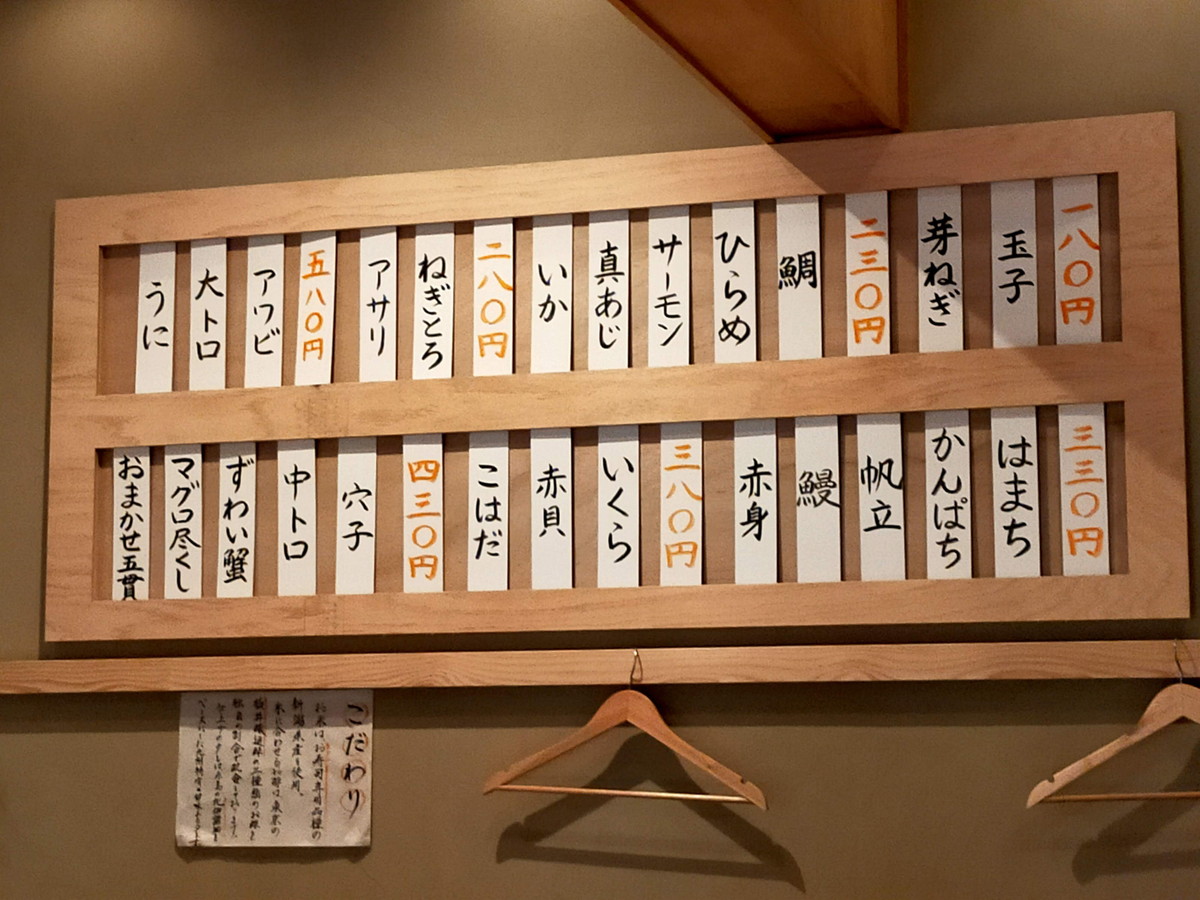 一八〇円
玉子
芽ねぎ
二三〇円
鯛
ひらめ
サーモン
真あじ
いか
二八〇円
ねぎとろ
アサリ
五八〇円
アワビ
大トロ
うに
三三〇円
はまち
かんぱち
帆立
鰻
赤身
三八〇円
いくら
赤貝
こはだ
四三〇円
穴子
中トロ
ずわい蟹
マグロ尽くし
おまかせ五貫
こだわり
お米はお寿司専用品種の
新潟県産を使用。